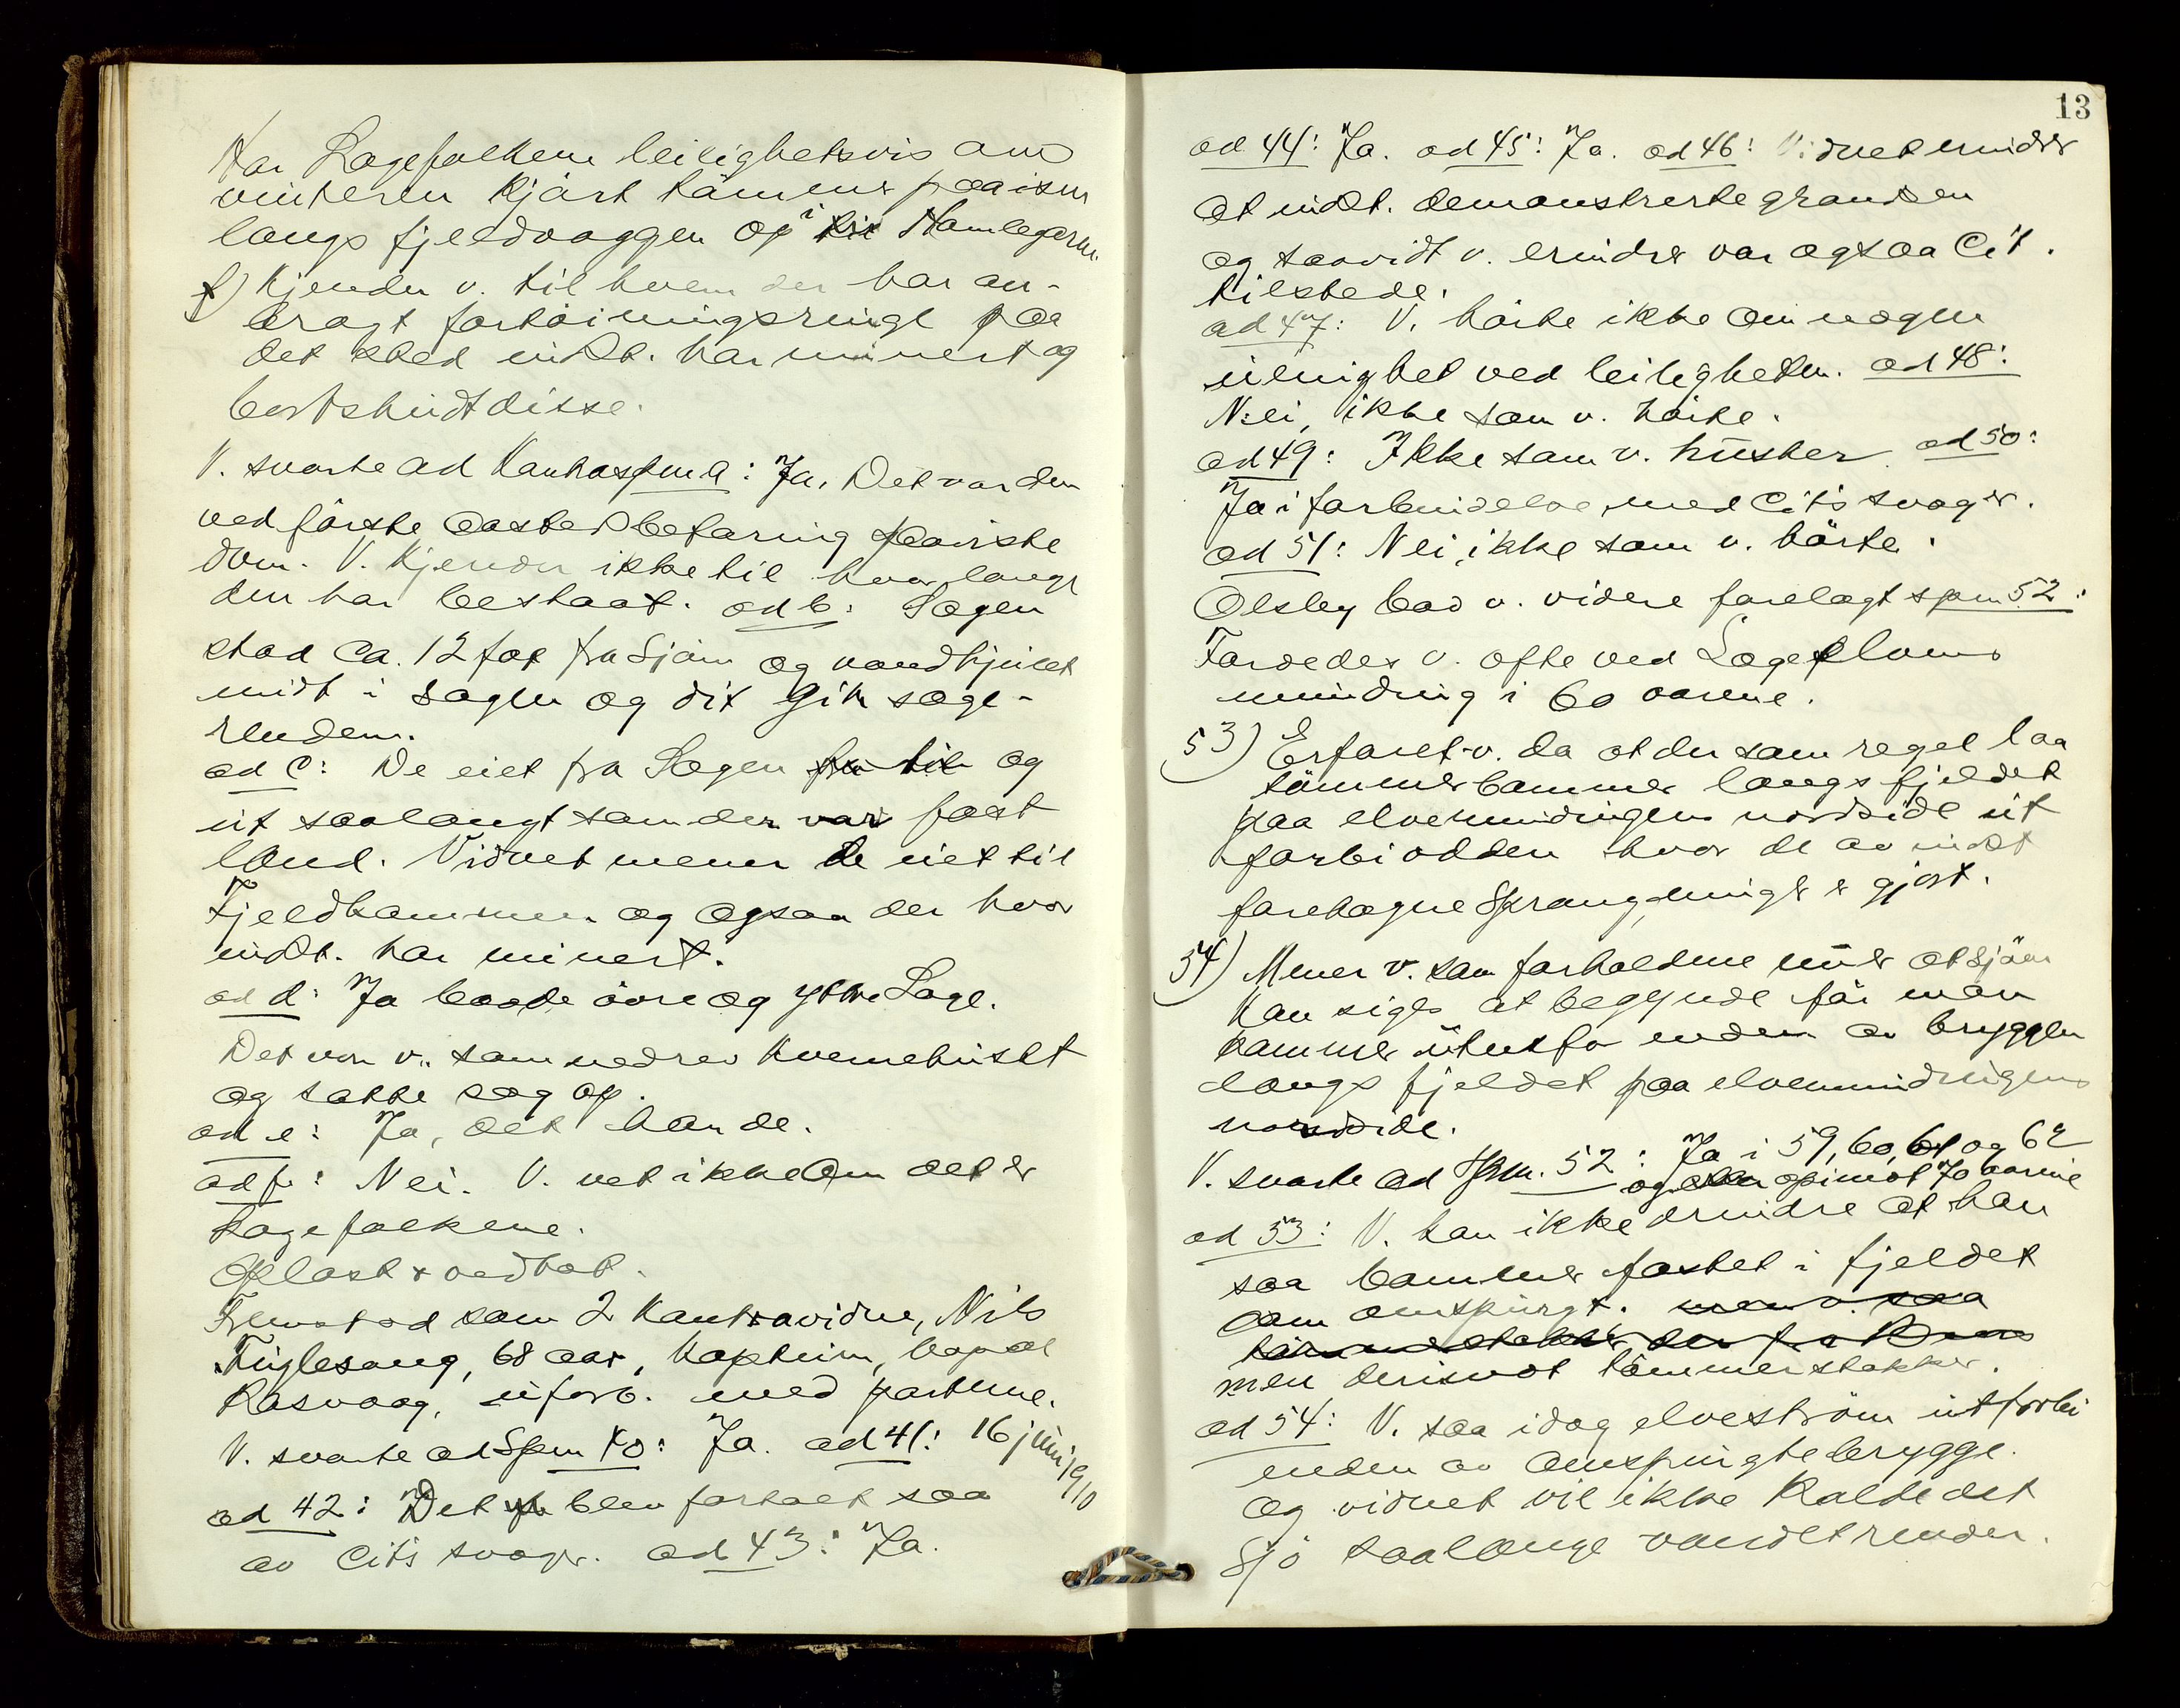 Har Sagefolkene leilighetsvis om
vinteren kjørt tømmer paa isen
langs fjeldvæggen op i til Hamlegeren.
f) Kjender v. til hvem der har an-
bragt fortøiningsringe paa
det sted indst. har minert og
bortskudt disse.
V. svarte ad Kontraspm a: Ja, Det var den
ved første aastedsbefaring paaviste
dam. V. kjender ikke til hvor længe
den har bestaat. ad b: Sagen
stod ca. 12 fot fra Sjøen og vandhjulet
midt i sagen og dit gik sage-
renden.
ad c: De eiet fra Sagen fra til og
ut saalangt som der var fast
land. Vidnet mener de eiet til
Fjeldhammeren og ogsaa der hvor
indst. har minert.
ad d: Ja baade øvre og ytre Sage.
Det var v. som nedrev kvernehuset
og satte sag op.
ad e: Ja, det hænde.
ad f: Nei. V. vet ikke om det er
Sagefolkene.
Oplæst & vedtat.
Fremstod som 2 Kontravidne, Nils
Fuglesang, 68 aar, Kaptein, bopæl
Rasvaag, uforb. med parterne.
V. svarte ad Spm 40: Ja. ad 41: 16 juni 1910
ad 42: Det blev fortalt saa
av Cit's svoger. ad 43: Ja.
13
ad 44: Ja. ad 45: Ja. ad 46: Vidnet erindrer
at indst. demonstrerte grænsen
og saavidt v. erindrer var ogsaa Cit.
tilstede.
ad 47: V. hørte ikke om nogen
uenighet ved leiligheten. ad 48:
Nei, ikke som v. hørte.
ad 49: Ikke som v. husker. ad 50:
Ja i forbindelse med Cit's svoger.
ad 51: Nei, ikke som v. hørte.
Olsby bad v. videre forelagt spm 52:
Færdedes v. ofte ved Sageelvens
munding i 60 aarene.
53) Erfaret v. da at der som regel laa
tømmerbommer langs fjeldet
paa elvemundingens nordside ut
forbi odden hvor de av indst
foretagne Sprængninger er gjort.
54) Mener v. som forholdene nu er at Sjøen
kan siges at begynde før man
kommer utenfor enden av bryggen
langs fjeldet paa elvemundingens
nordside.
V. svarte ad Spm. 52: Ja i 59, 60, 61 og 62
og opimot 70 aarene
ad 53: V. kan ikke erindre at han
saa bommer fæstet i fjeldet
som omspurgt. men v. saa
men derimot tømmerstokker.
ad 54: V. saa idag elvestrøm ut forbi
enden av omspurgte brygge
og vidnet vil ikke kalde det
Sjø saalænge vandet render.